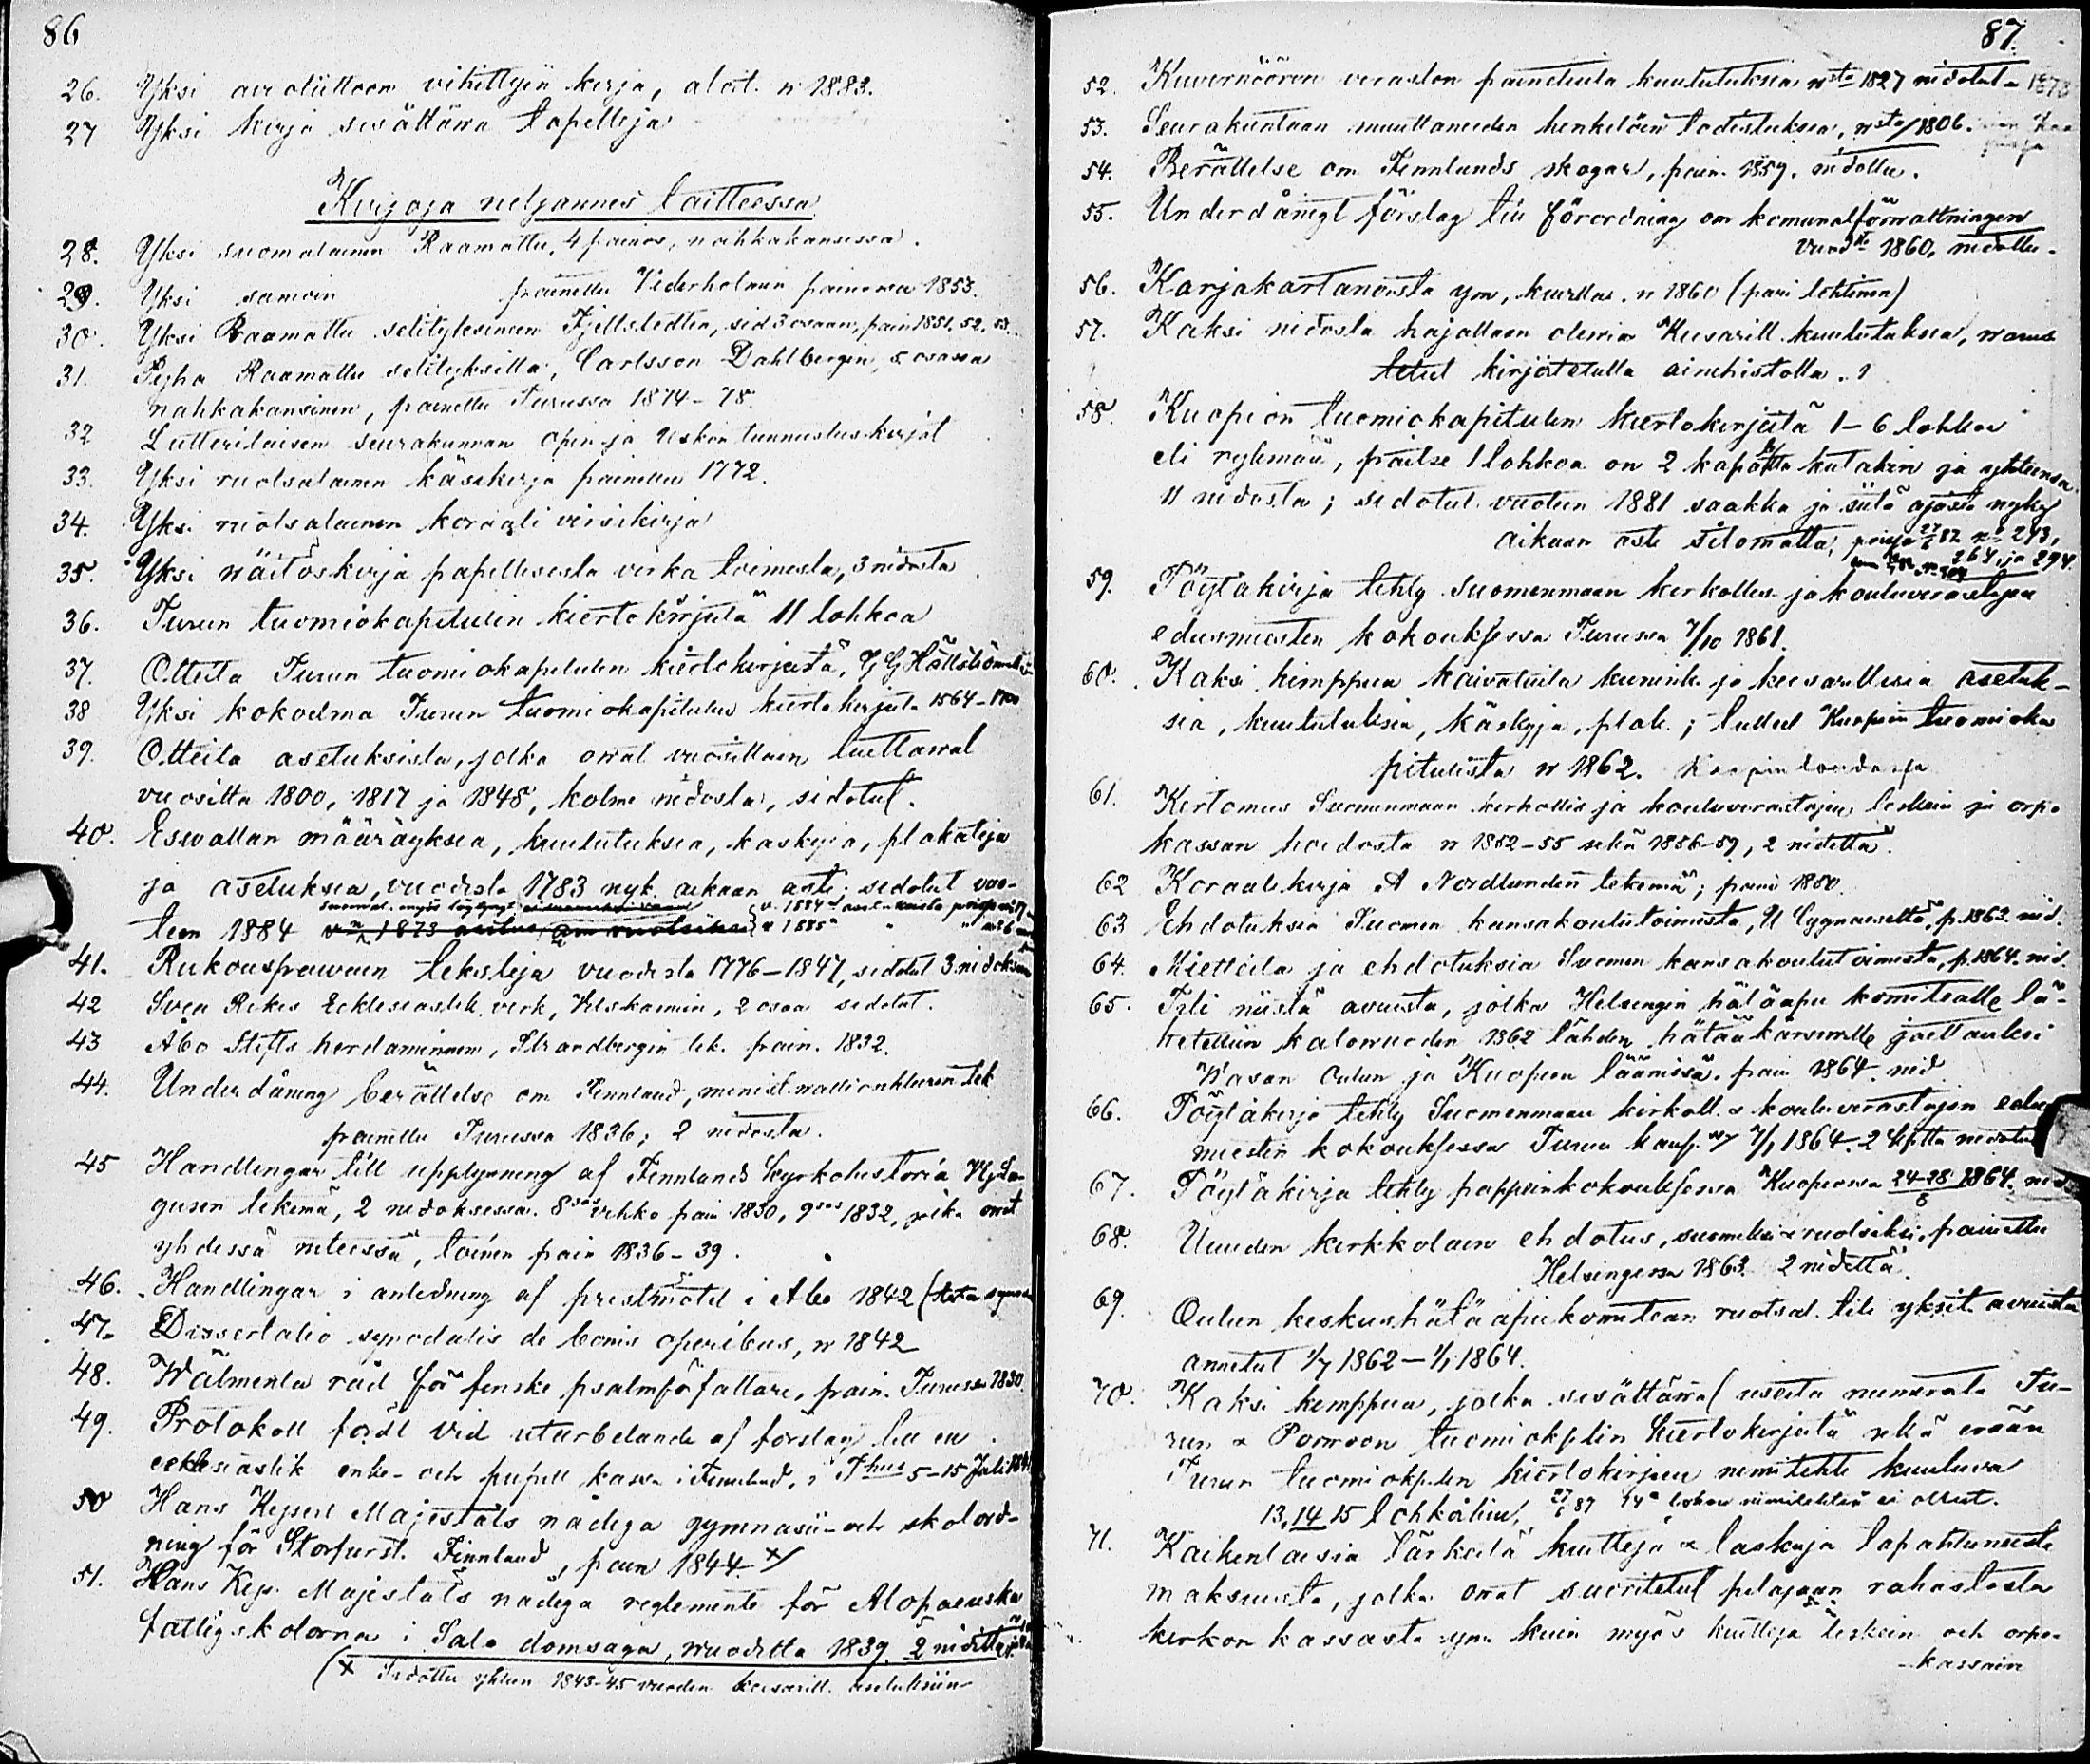 86
26. Yksi avioliittoon vihittyjin kirja, aloit. w 1883.
27 Yksi kirja sisältäwä tapelleja
Kirjoja neljännes taitteessa
28. Yksi suomalainen Raamattu, 4 painos, nahkakansissa.
29. Yksi samoin painettu Viderholmin painossa 1853.
30. Yksi Raamattu selityksineen Fjellstedtin, sid 3 osaan, pain 1851, 52, 53.
31. Pyhä Raamattu selityksillä, Carlsson Dahlbergin, 5 osassa
nahkakansinen, painettu Turussa 1874-78.
32 Lutterilaisen seurakunnan Opin ja Uskon tunnustuskirjat
33. Yksi ruotsalainen käsikirja painettu 1772.
34. Yksi ruotsalainen koraali virsikirja
35. Yksi wäitöskirja papillisesta virka toimesta, 3 nidosta
36. Turun tuomiokapitulin kiertokirjeitä 11 lohkoa
37. Otteita Turun tuomiokapitulin kiertokirjeistä, G G Hällström
38 Yksi kokoelma Turun tuomiokapitulin kiertokirjeitä 1564-1700
39. Otteita asetuksista, jotka owat vuosittain luettawat
vuosilta 1800, 1817 ja 1848, kolme nidosta, sidotut.
40. Esivallan määräyksiä, kuulutuksia, käskyjä, plakateja
ja asetuksia, vuodesta 1783 nyk. aikaan asti; sidotut vuo-
teen 1884
41. Rukouspäiwäin tekstejä vuodesta 1776-1847, sidotut 3 nidokseen
42 Svea Rikes Ecklesiastik verk, Vilskmanin, 2 osaa sidotut.
43 Åbo Stifts herdaminnen, Strandbergin tek. pain. 1832.
44. Underdånig berättelse om Finnland,
painettu Turussa 1836; 2 nidosta.
45 Handlingar till upplysning af Finnlands kyrkohistoria W G La-
gusen tekemä, 2 nidoksessa. 8sas vihko pain 1830, 9sas 1832, jotka owat
yhdessä niteessä, toinen pain 1836-39.
46. Handlingar i anledning af prestmötet i Åbo 1842
47. Dissertatio synodalis de bonis operibus, w 1842
48. Wälmenta råd för finske psalmförfattare, pain. Turussa 1830.
49. Protokoll fördt vid utarbetande af förslag till en
ecklesiastik enke- och pupill kassa i Finnland, i Thus 5-15 Juli 1841
50 Hans Kejserl Majestäts nådiga gymnasii- och skolord-
ning för Storfurst. Finnland, pain 1844. x/
51. Hans Kejs. Majestäts nådiga reglemente för Alopaeuska
fattigskolorna i Sala domsaga, wuodelta 1839. 2 nidettä
(x Sidottu yhteen 1843-45 vuoden keisarill. asetuksiin
87.
52. Kuvernöörin viraston painetuita kuulutuksia wsta 1827 nidotut - 1873
53. Seurakuntaan muuttaneiden henkilöin todistuksia, wsta 1806.
54. Berättelse om Finnlands skogar, pain. 1859. nidottu.
55. Underdånigt förslag till förordning om komunalförwaltningen
vuodlta 1860, nidottu.
56. Karjakartanoista ym, kuvllus. w 1860 (pari lehtinen)
57. Kaksi nidosta hajallaan olewia Keisarill. kuulutuksia, warus
tetut kirjoitetulla ainehistolla. 1
58. Kuopion tuomiokapitulin kiertokirjeitä 1-6 lohkoa
eli ryhmää, paitse 1 lohkoa on 2 kapaletta kutakin ja yhteensä
11 nidosta; sidotut vuoteen 1881 saakka ja siitä ajasta nyky
aikaan asti sitomatta, poissa 27/6 82 no 293,
264, ja 294.
59. Pöytäkirja tehty Suomenmaan kirkollis- ja kouluvirastojen
edusmiesten kokouksessa Turussa 7/10 1861.
60. Kaksi kimppua kaivatuita kunink. ja keisarillisia asetuk-
sia, kuulutuksia, käskyjä, plak.; tulleet Kuopion tuomioka
pitulista w 1862.
61. Kertomus Suomenmaan kirkollis ja kouluvirastojen leskein ja orpo
kassan hoidosta w 1852-55 sekä 1856-59, 2 nidettä.
62 Koraalikirja A Nordlundin tekemä; pain 1850.
63 Ehdotuksia Suomen kansakoulutoimesta, U Cygnaeuselta, p. 1863. nid.
64. Mietteitä ja ehdotuksia Suomen kansakoulutoimesta, p. 1864. nid.
65. Tili niistä avuista, jotka Helsingin hätäapu komitealle lä-
hetettiin katowuoden 1862 tähden hätää kärsiwille jaettaviksi
Wasan Oulun ja Kuopion läänissä. pain 1864. nid
66. Pöytäkirja tehty Suomenmaan kirkoll. & kouluvirastojen edus
miestin kokouksessa Turun kaup. w 7/1 1864. 2 kpltta nidotut
67. Pöytäkirja tehty pappeinkokouksessa Kuopiossa 24-28/8 1864. nid
68. Uuden kirkkolain ehdotus, suomeksi & ruotsiksi, painettu
Helsingissä 1863. 2 nidettä.
69. Oulun keskushätäapukomitean ruotsal. tili yksit. avuista
annetut 1/7 1862-1/1 1864.
70. Kaksi kimppua, jotka sisältäwät useita numeroita Tu-
run & Porwoon tuomiokplin kiertokirjeitä sekä erään
Turun tuomiokplin kiertokirjeen nimilehti kuuluva
13, 14 15 lohkoihin, 27/6 87 14a lohkon nimilehteä ei ollut.
71. Kaikenlaisia tärkeitä kuitteja & laskuja tapahtuneista
maksuista, jotka owat suoritetut pitäjään rahastosta
kirkon kassasta ym. kuin myös kuitteja leskein och orpo-
kassain